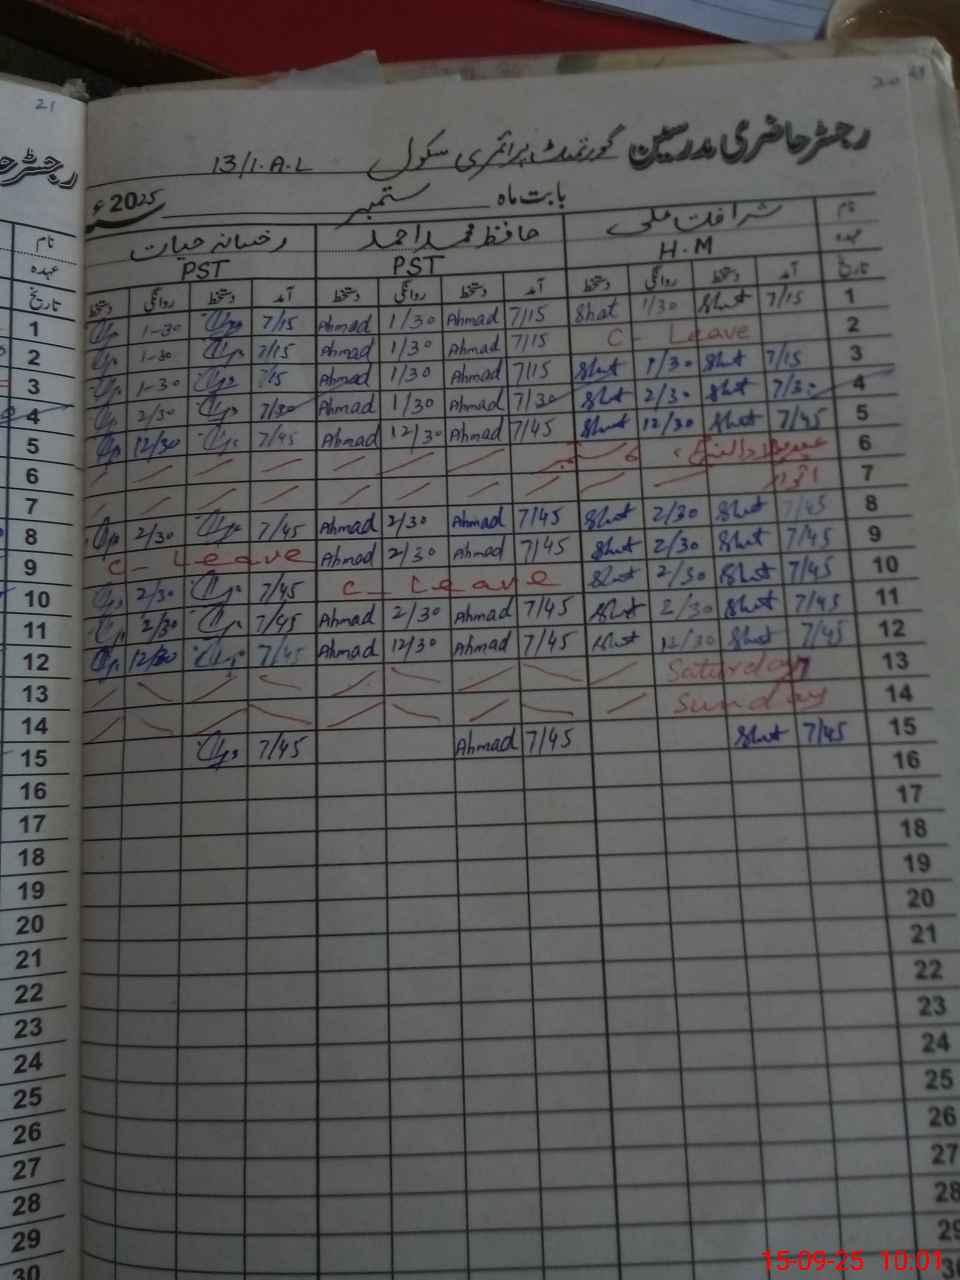 21
20
رجسٹر حاضری مدرسین گورنمنٹ پرائمری سکول 13/1.A.L
بابت ماہ ستمبر 2025ء
نام شرافت علی حافظ محمد احمد رخسانہ حیات
عہدہ H.M PST PST
تاریخ آمد دستخط روانگی دستخط آمد دستخط روانگی دستخط آمد دستخط روانگی دستخط
1 7/15 Shat 1/30 Shat 7/15 Ahmad 1/30 Ahmad 7/15 1-30
2 C - Leave 7/15 Ahmad 1/30 Ahmad 7/15 1-30
3 7/15 Shat 1/30 Shat 7/15 Ahmad 1/30 Ahmad 7/15 1-30
4 7/30 Shat 2/30 Shat 7/30 Ahmad 1/30 Ahmad 7/30 2/30
5 7/45 Shat 12/30 Shat 7/45 Ahmad 12/30 Ahmad 7/45 12/30
6
7 اتوار
8 7/45 Shat 2/30 Shat 7/45 Ahmad 2/30 Ahmad 7/45 2/30
9 7/45 Shat 2/30 Shat 7/45 Ahmad 2/30 Ahmad C - Leave
10 7/45 Shat 2/30 Shat C - Leave 7/45 2/30
11 7/45 Shat 2/30 Shat 7/45 Ahmad 2/30 Ahmad 7/45 2/30
12 7/45 Shat 12/30 Shat 7/45 Ahmad 12/30 Ahmad 7/45 12/30
13 Saturday
14 Sunday
15 7/45 Shat 7/45 Ahmad 7/45
16
17
18
19
20
21
22
23
24
25
26
27
28
29
30
رجسٹر
نام
عہدہ
تاریخ
1
2
3
4
5
6
7
8
9
10
11
12
13
14
15
16
17
18
19
20
21
22
23
24
25
26
27
28
29
30
15-09-25 10:01